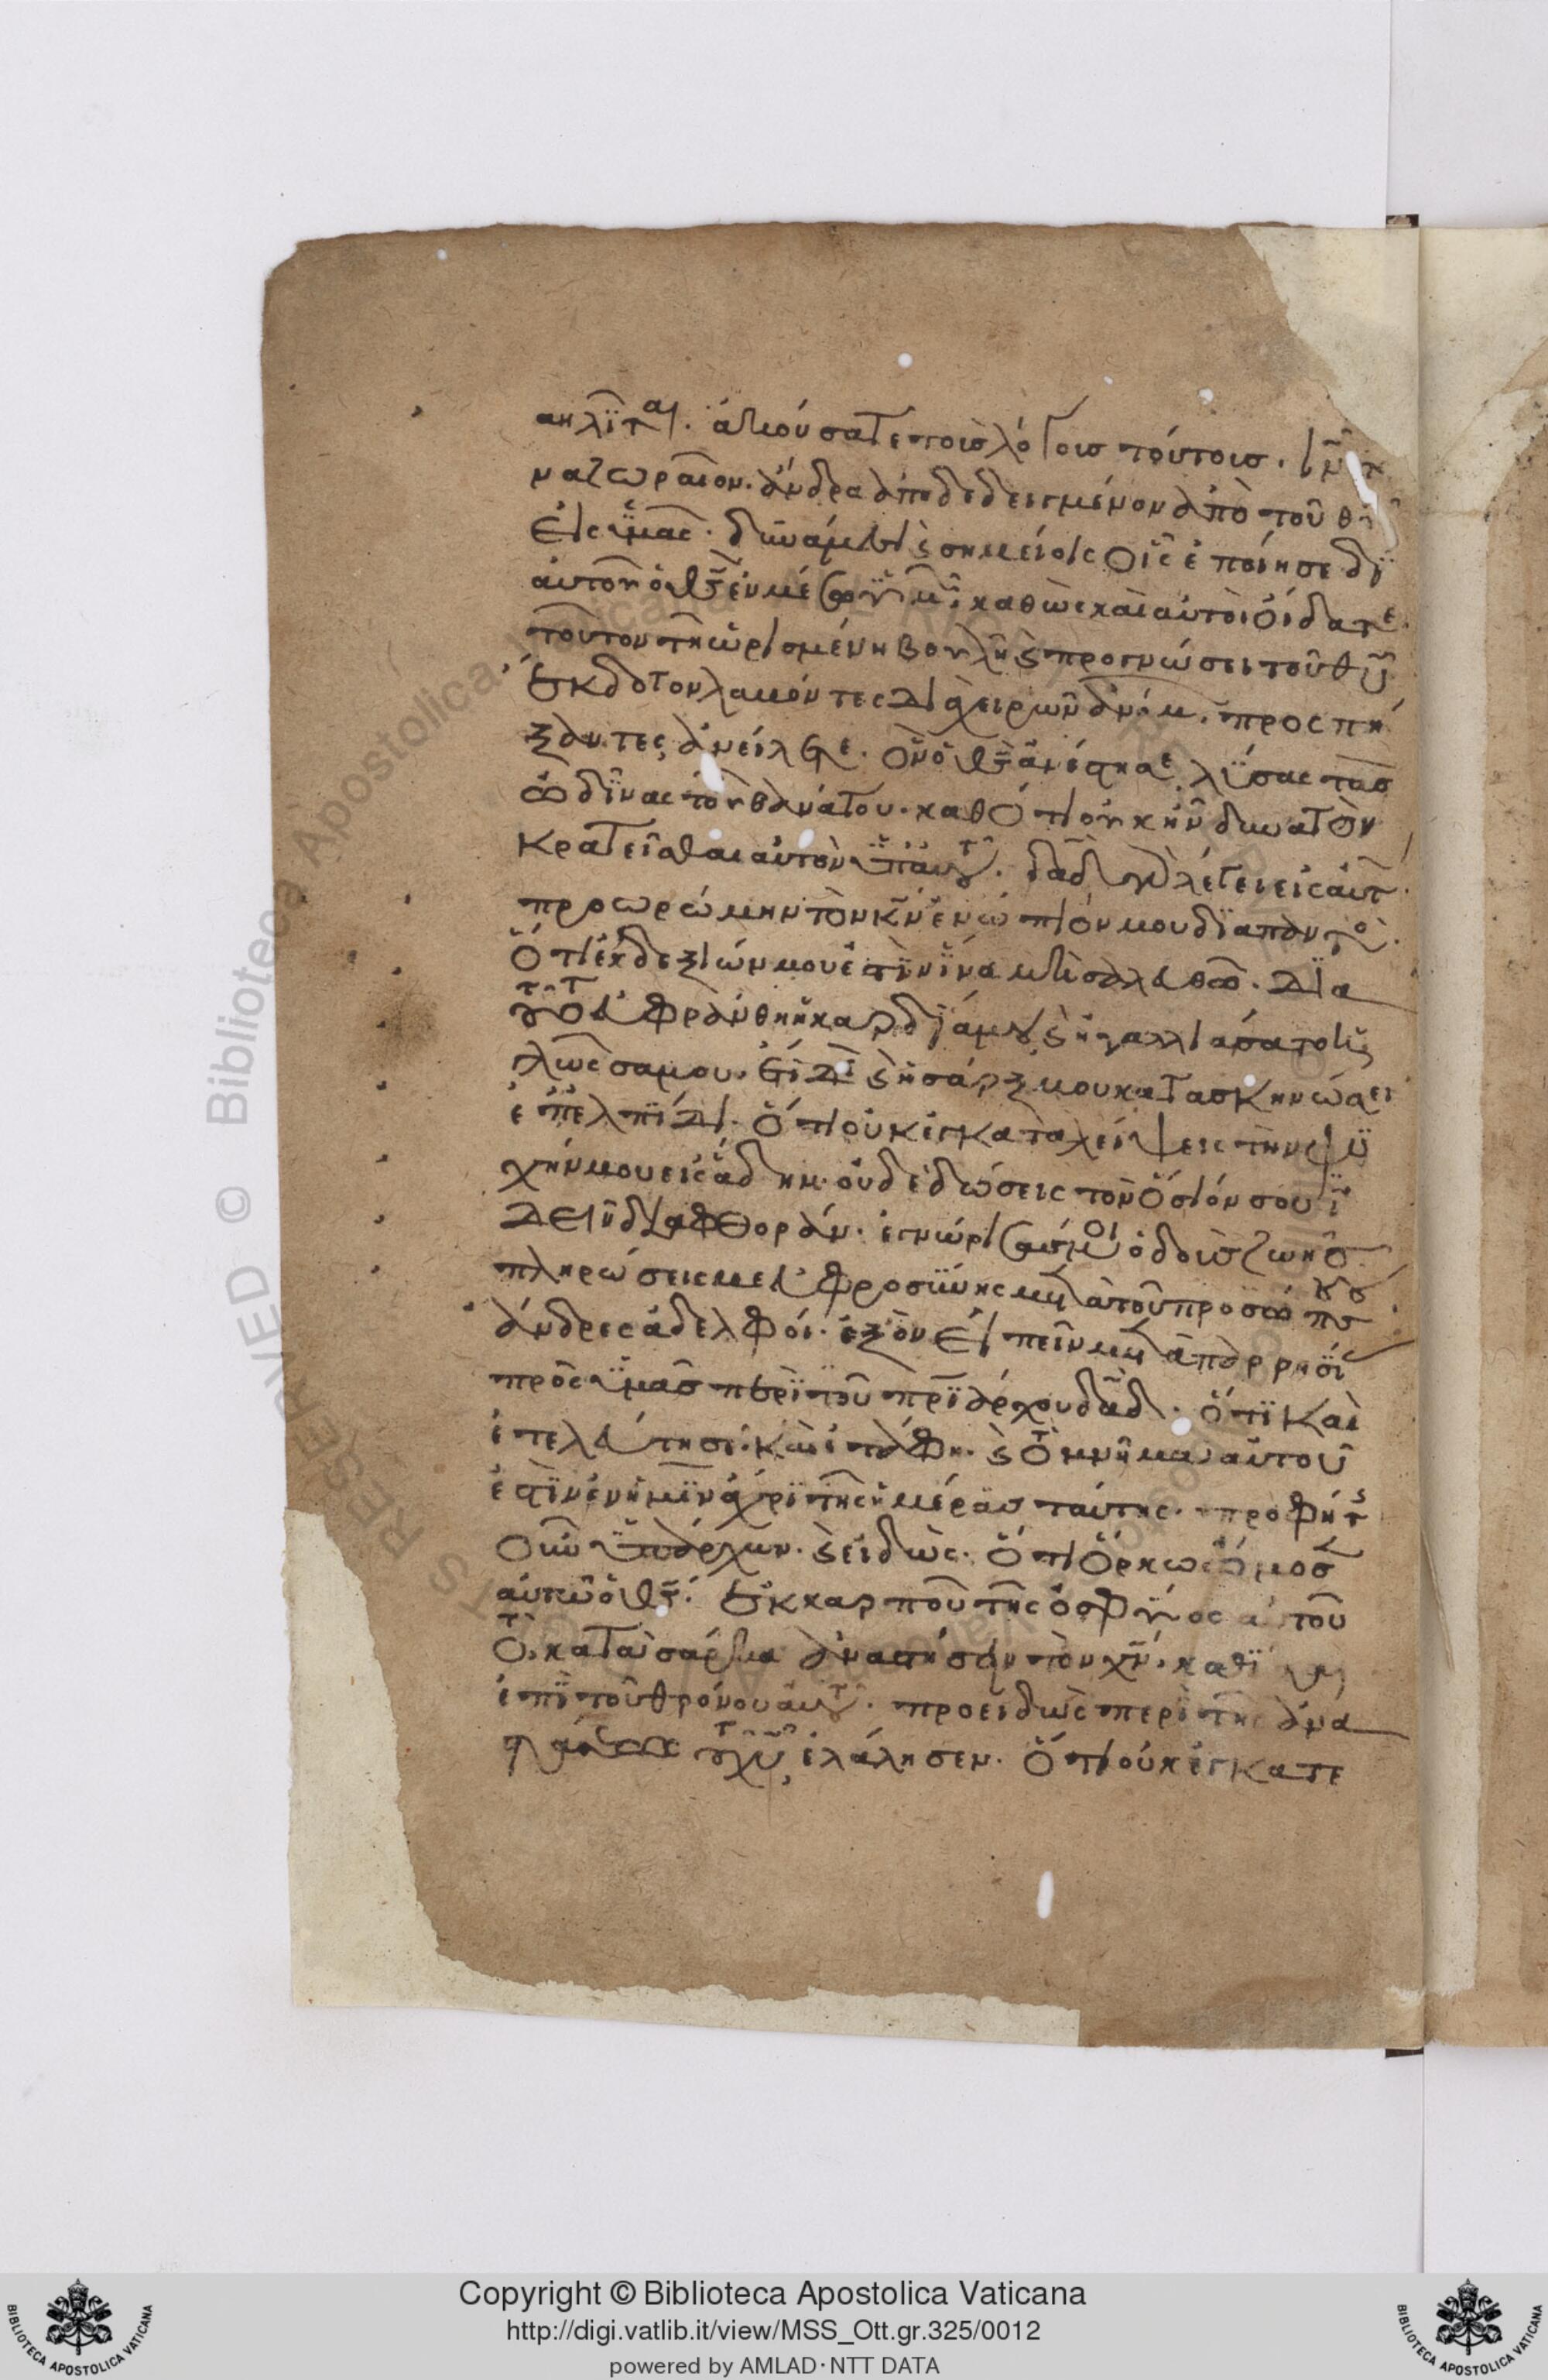 αηλῖται. ἀκούσατε τοὺσ λόγουσ τούτουσ. ιν̅ τ
ναζωραῖον. ἄνδρα ἀποδεδειγμένον ἀπὸ τοῦ θυ̅
εἰς ὑμᾶς. δυνάμεσι ϛ σημείοις οἷς ἐποίησε δι
αὐτοῦ ὁ θς̅ ἐν μέσω ὑμ. καθὼς καὶ αὐτοὶ οἴδατε.
τοῦτον τῆ ὡρισμένη βουλῆ ϛ προγνώσει τοῦ θυ̅
ἔκδοτον λαβόντες διὰ χειρῶν ἀνόμ. προσπή
ξαντες ἀνείλετε. ὃν ὁ θς̅ ἀνέστησε λύσας τὰσ
ὠδῖνας τοῦ θανάτου. καθότι οὐκ ἦν δυνατὸν
κρατεῖσθαι αὐτὸν ὑπ αὐτοῦ. δαδ γὰρ λέγει εἰς αὐτ.
προωρώμην τὸν κν̅ ἐνώπιόν μου διαπαντό.
ὅτι ἐκ δεξιῶν μου ἐστὶν ἵνα μὴ σαλευθῶ. δια
τοῦτο εὐφράνθη ἡ καρδία μου ϛ ἠγαλλιάσατο ἡ
γλῶσσα μου. ἔτι δὲ ϛ ἡ σάρξ μου κατασκηνώσει
ἐπ ἐλπίδι. ὅτι οὐκ ἐγκαταλείψεις τὴν ψυ
χήν μου εἰς ἅδην. οὐδὲ δώσεις τὸν ὅσιόν σου ἰ
δεῖν διαφθοράν. ἐγνώρισάς μοι ὁδοὺσ ζωῆσ
πληρώσεις με εὐφροσύνης μετὰ τοῦ προσώπου σου
ἄνδρες ἀδελφοί. ἐξὸν εἰπεῖν μετὰ παρρησί
πρὸς ὑμᾶσ περὶ τοῦ πριάρχου δαδ. ὅτι καὶ
ἐτελεύτησε. καὶ ἐτάφη. ϛ τὸ μνῆμα αὐτοῦ
ἐστὶν ἐν ἡμῖν ἄχρι τῆς ἡμέρασ ταύτης. προφήτ
οὖν ὑπάρχων. ϛ εἰδὼς. ὅτι ὅρκω ὤμοσ
αὐτῶ ὁ θς̅. ἐκ καρποῦ τῆς ὀσφύος αὐτοῦ
τὸ κατὰ σάρκα ἀναστήσειν τὸν χν̅. καθῖσαι
ἐπὶ τοῦ θρόνου αὐτοῦ. προειδὼς περὶ τῆς ἀνα
στάσεως τοῦ χυ̅ ἐλάλησεν. ὅτι οὐκ ἐγκατε
Copyright © Biblioteca Apostolica Vaticana
http://digi.vatlib.it/view/MSS_Ott.gr.325/0012
powered by AMLAD·NTT DATA